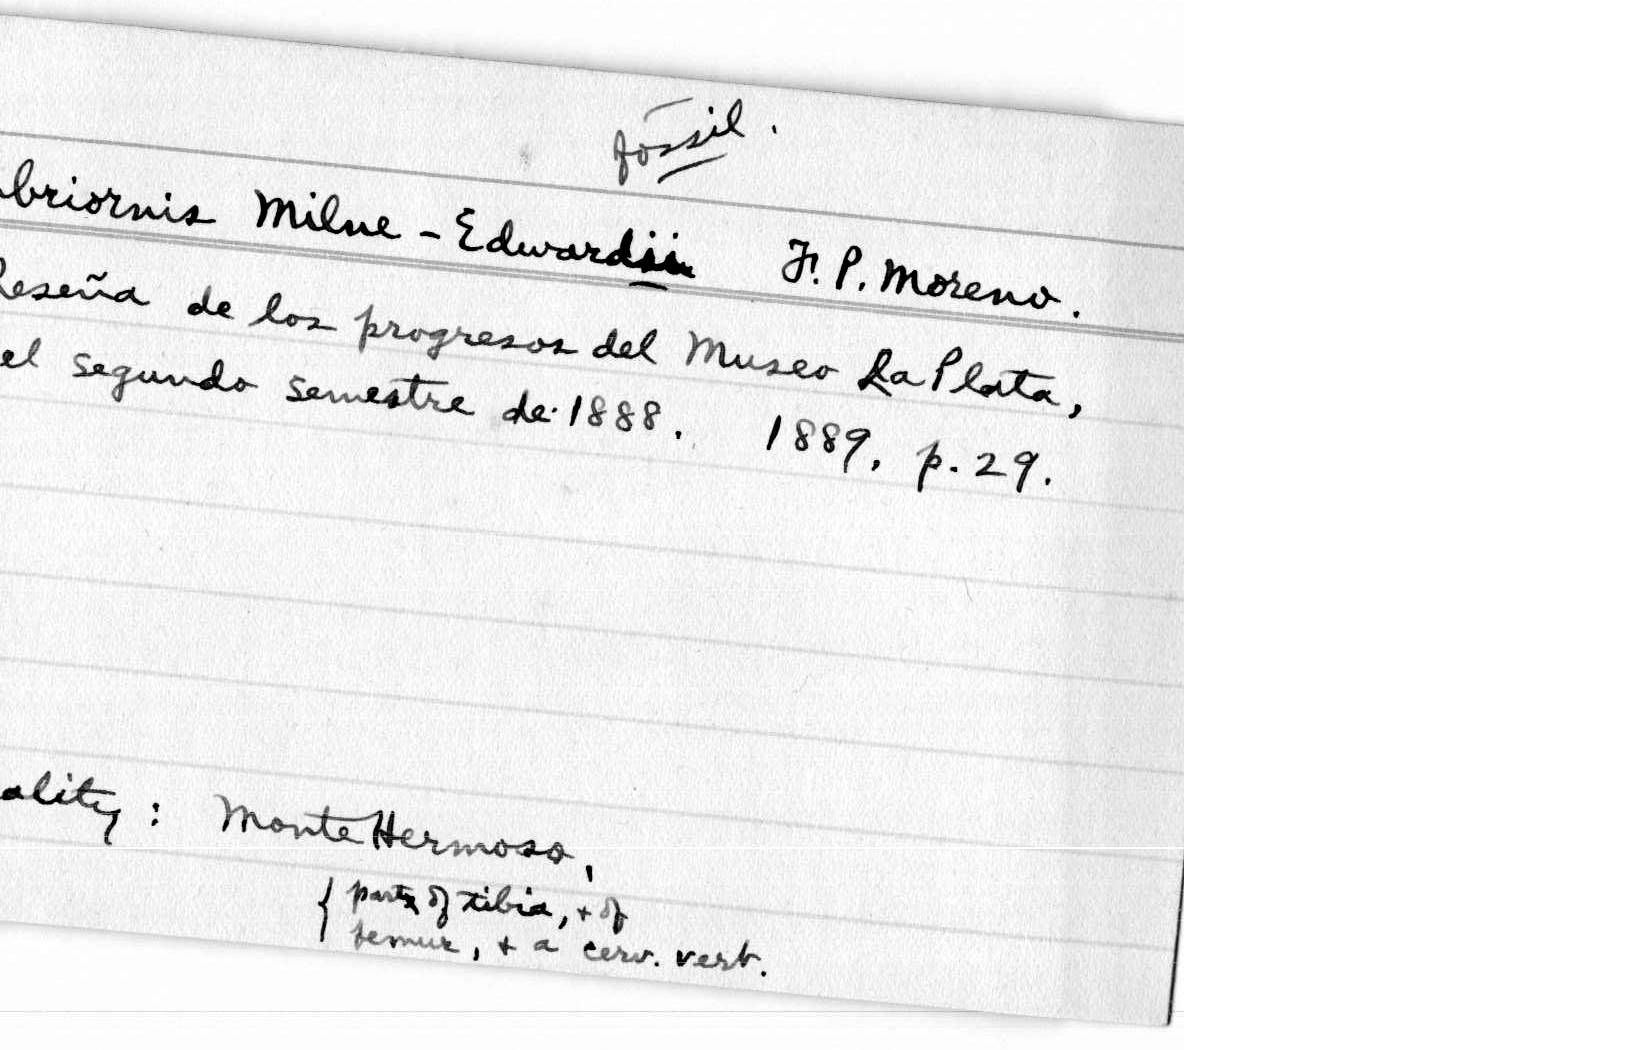 fossil.
briornis Milne-Edwardsii F. P. Moreno.
Reseña de los progresos del Museo La Plata,
el segundo semestre de 1888. 1889, p. 29.
ality: Monte Hermoso,
{ parts of tibia, + of
femur, + a cerv. vert.